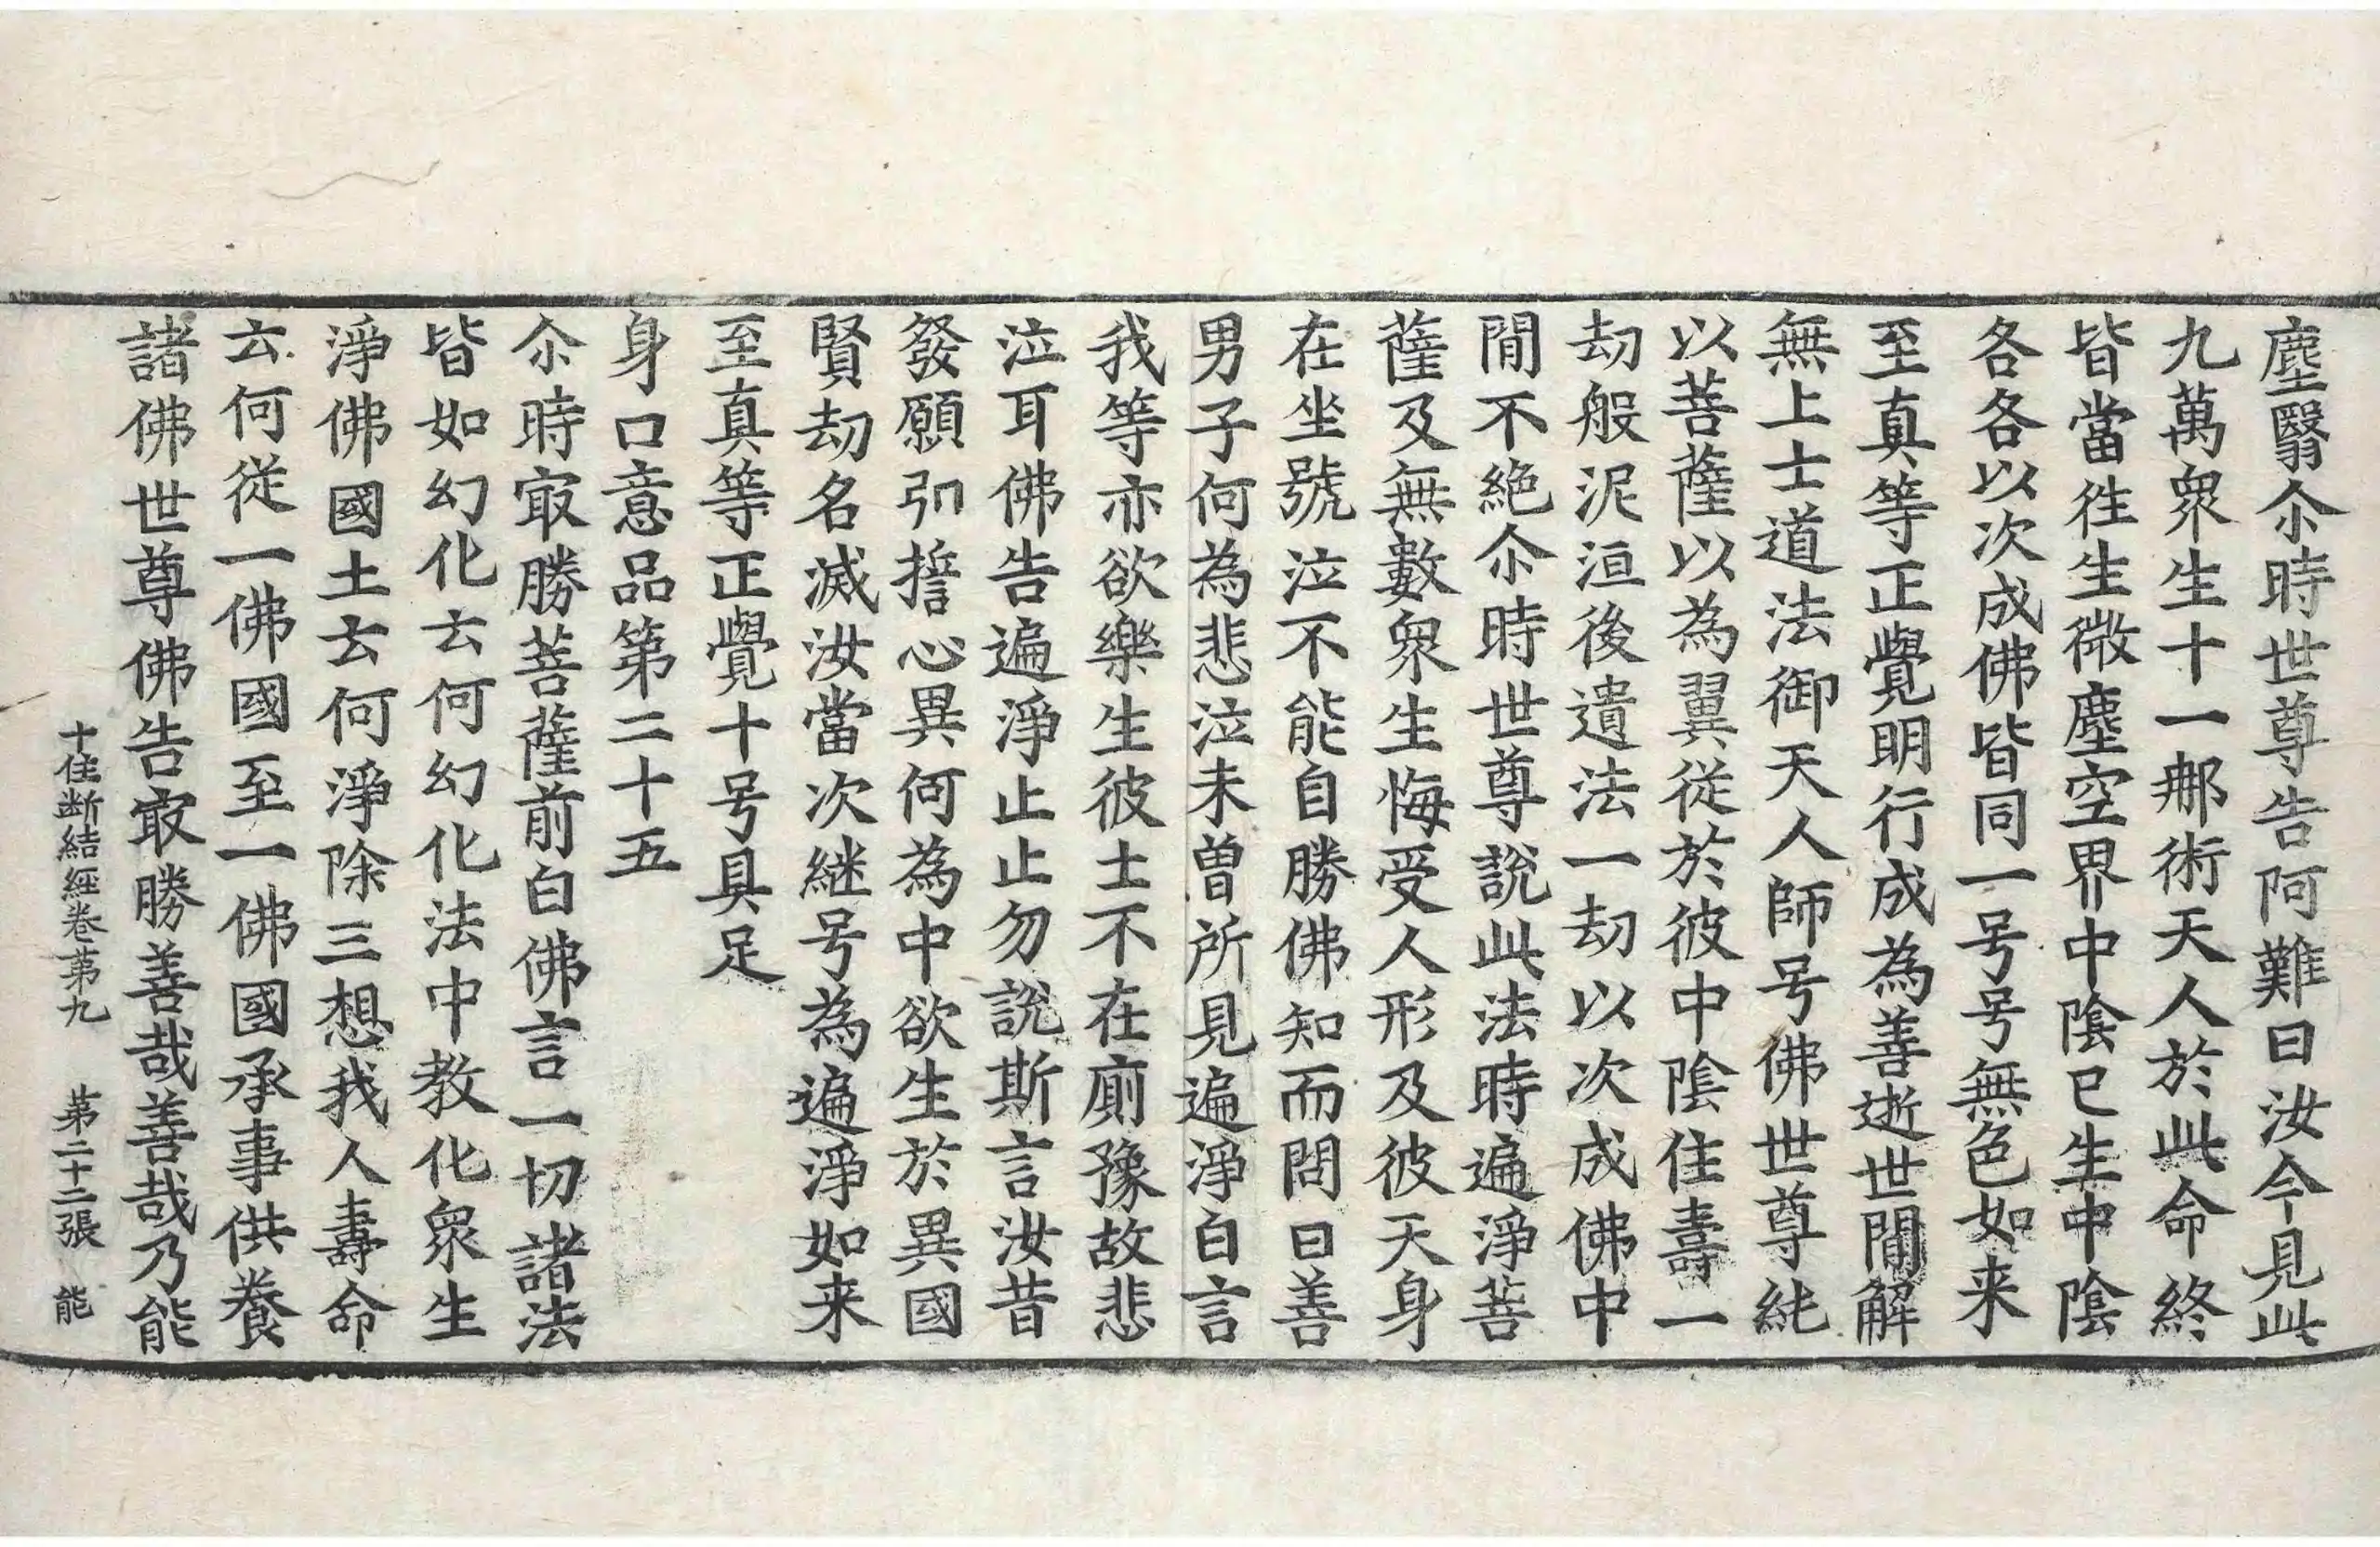 塵翳尒時世尊告阿難曰汝今見此
九萬衆生十一㢤術天人於此命終
皆當往生微塵空界中陰已生中陰
各各以次成佛皆同一号号無色如来
至真等正覺明行成為善逝世間解
無上士道法御天人師号佛世尊純
以菩薩以為翼従於彼中陰住壽一
劫般泥洹後遺法一劫以次成佛中
間不絶尒時世尊說此法時遍淨菩
薩及無數衆生悔受人形及彼天身
在坐號泣不能自勝佛知而問曰善
男子何為悲泣未曽所見遍淨白言
我等亦欲樂生彼士不在廁豫故悲
泣耳佛告遍淨止止勿說斯言汝昔
發願弘誓心異何為中欲生於異國
賢劫名滅汝當次継号為遍淨如来
至真等正覺十号具足
身口意品第二十五
尒時㝡勝菩薩前白佛言一切諸法
皆如幻化云何幻化法中教化衆生
淨佛國土云何淨除三想我人壽命
云何従一佛國至一佛國承事供養
諸佛世尊佛告㝡勝善哉善哉乃能
十住断結經卷第九 第二十二張 能